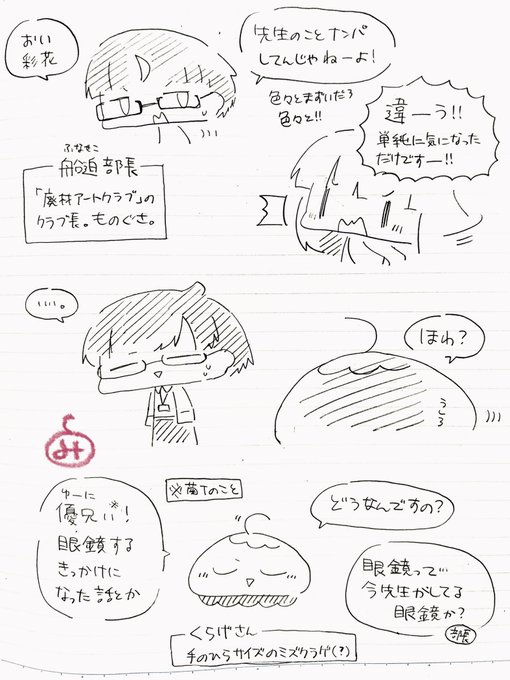 おい
彩花
先生のことナンパ
してんじゃねーよ!
色々とまずいだろ
色々と!!
違ーう!!
単純に気になった
だけですー!!
ふなせこ
船迫部長
「廃材アートクラブ」の
クラブ長。ものぐさ。
…。
ほわ?
うしろ
み
ゆーに
優兄ぃ!※
眼鏡する
きっかけに
なった話とか
※苗Tのこと
どうなんですの?
眼鏡って…
今先生がしてる
眼鏡か?
部長
くらげさん
手のひらサイズのミズクラゲ(?)